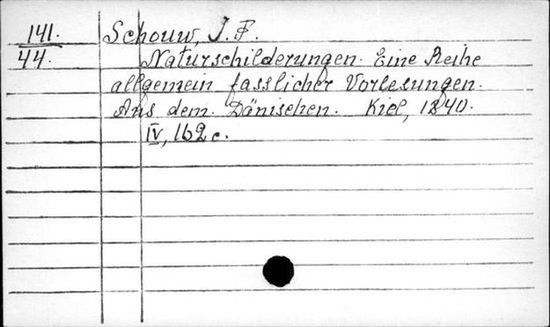 141. Schouw, J. F.
44. Naturschilderungen. Eine Reihe
allgemein fasslicher Vorlesungen.
Aus dem Dänischen. Kiel, 1840.
IV, 162 c.